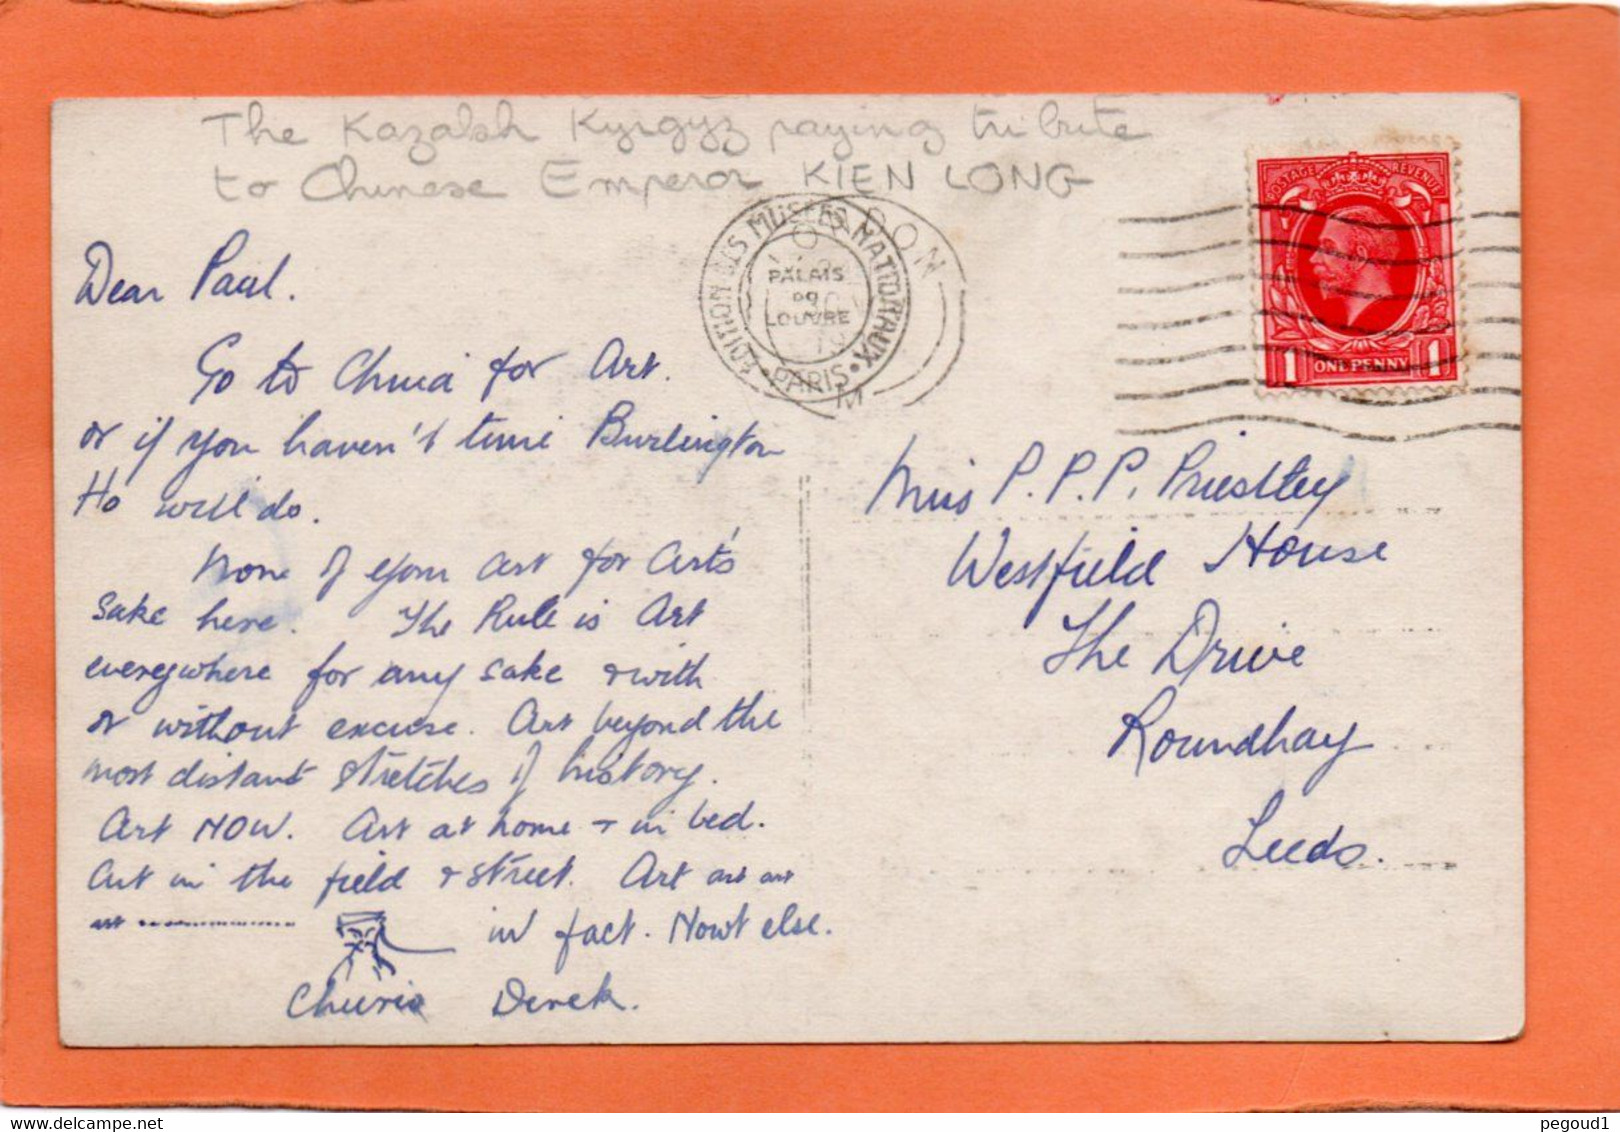 The Kazakh Kyrgyz paying tribute
to Chinese Emperor KIEN LONG
LONDON
EDITION DES MUSEES NATIONAUX • PARIS •
PALAIS
DU
LOUVRE
POSTAGE REVENUE
1 ONE PENNY 1
Dear Paul.
Go to China for Art.
or if you haven't time Burlington
Ho will do.
None of your art for art's
sake here. The Rule is Art
everywhere for any sake & with
or without excuse. Art beyond the
most distant stretches of history.
Art NOW. Art at home & in bed.
Art in the field & street. Art art art
art in fact. Nowt else.
Derek.
Miss P. P. P. Priestley
Westfield House
The Drive
Roundhay
Leeds.
pegoud1